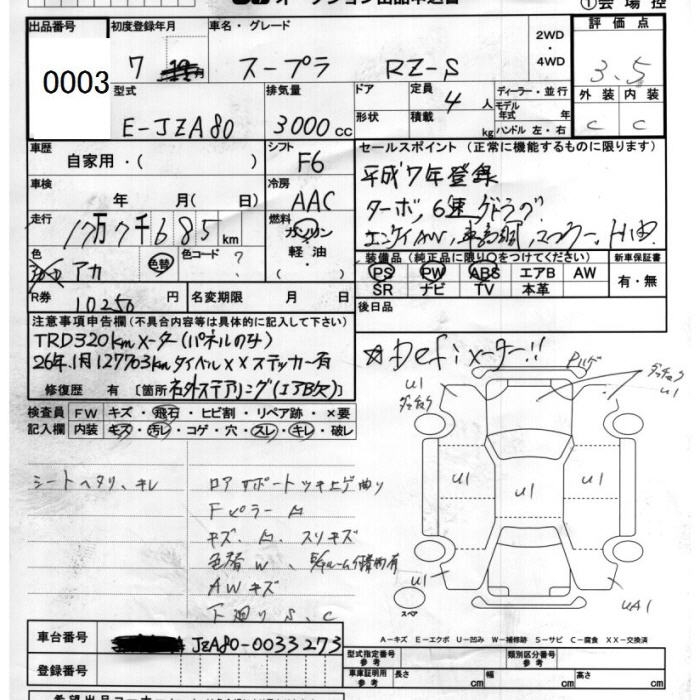 出品番号 初度登録年月 車名・グレード 2WD・4WD 評価点
0003 7 スープラ RZ-S 3.5
型式 排気量 ドア 定員 ディーラー・並行 外装 内装
E-JZA80 3000cc 4人 モデル年式 年 C C
形状 積載 kg ハンドル 左・右
車歴 シフト セールスポイント (正常に機能するものに限ります)
自家用・( ) F6 平成7年登録
車検 冷房 ターボ 6速ゲトラグ
年 月(日) AAC エンケイAW、車高調、マフラー、
走行 燃料
17万7千685km ガソリン・軽油・( )
色 色替 色コード 装備品 (純正品に限り○をつけてください) 新車保証書
アカ ? PS PW ABS エアB AW 有・無
SR ナビ TV 本革
R券 10250円 名変期限 月 日 後日品
注意事項申告欄(不具合内容等は具体的に記入して下さい)
TRD320kmメーター(パネルのみ) ☆Defiメーター!!
26年1月127703kmタイベル××ステッカー有
修復歴 有 [箇所 社外ステアリング(エアB欠)]
検査員記入欄 FW キズ・飛石・ヒビ割・リペア跡・×要
内装 キズ・汚レ・コゲ・穴・スレ・キレ・破レ
シートヘタリ、キレ ロアサポートツキ上ゲ曲り
Fピラー
キズ、 スリキズ
色替W、
AWキズ
下廻りS、C
ハゲ
U1
U1
U1
U1
U1
U1
UA1
スペア
A-キズ E-エクボ U-凹み W-補修跡 S-サビ C-腐食 XX-交換済
車台番号 JZA80-0033273 型式指定番号 参考 類別区分番号 参考
登録番号 車庫証明用 参考 長さ cm 幅 cm 高さ cm